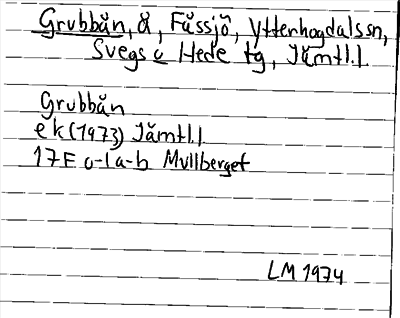 Grubbån, å, Fåssjö, Ytterhogdalssn,
Svegs o Hede tg, Jämtl.l.
Grubbån
ek (1973) Jämtl.l
17F 0-1a-b Mullberget
LM 1974